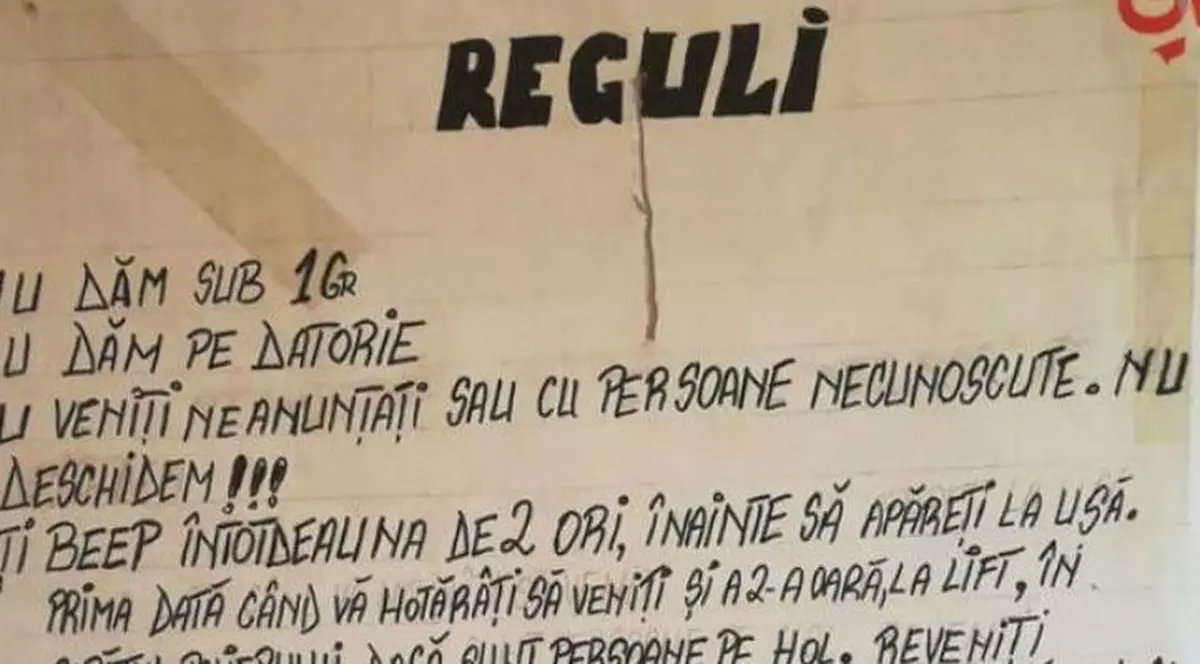 REGULI
U DĂM SUB 1GR
U DĂM PE DATORIE
U VENIȚI NEANUNȚAȚI SAU CU PERSOANE NECUNOSCUTE. NU
DESCHIDEM!!!
ȚI BEEP ÎNTOTDEAUNA DE 2 ORI, ÎNAINTE SĂ APĂREȚI LA UȘĂ.
PRIMA DATĂ CÂND VĂ HOTĂRÂȚI SĂ VENIȚI ȘI A 2-A OARĂ, LA LIFT, ÎN
DACĂ SUNT PERSOANE PE HOL. REVENIȚI